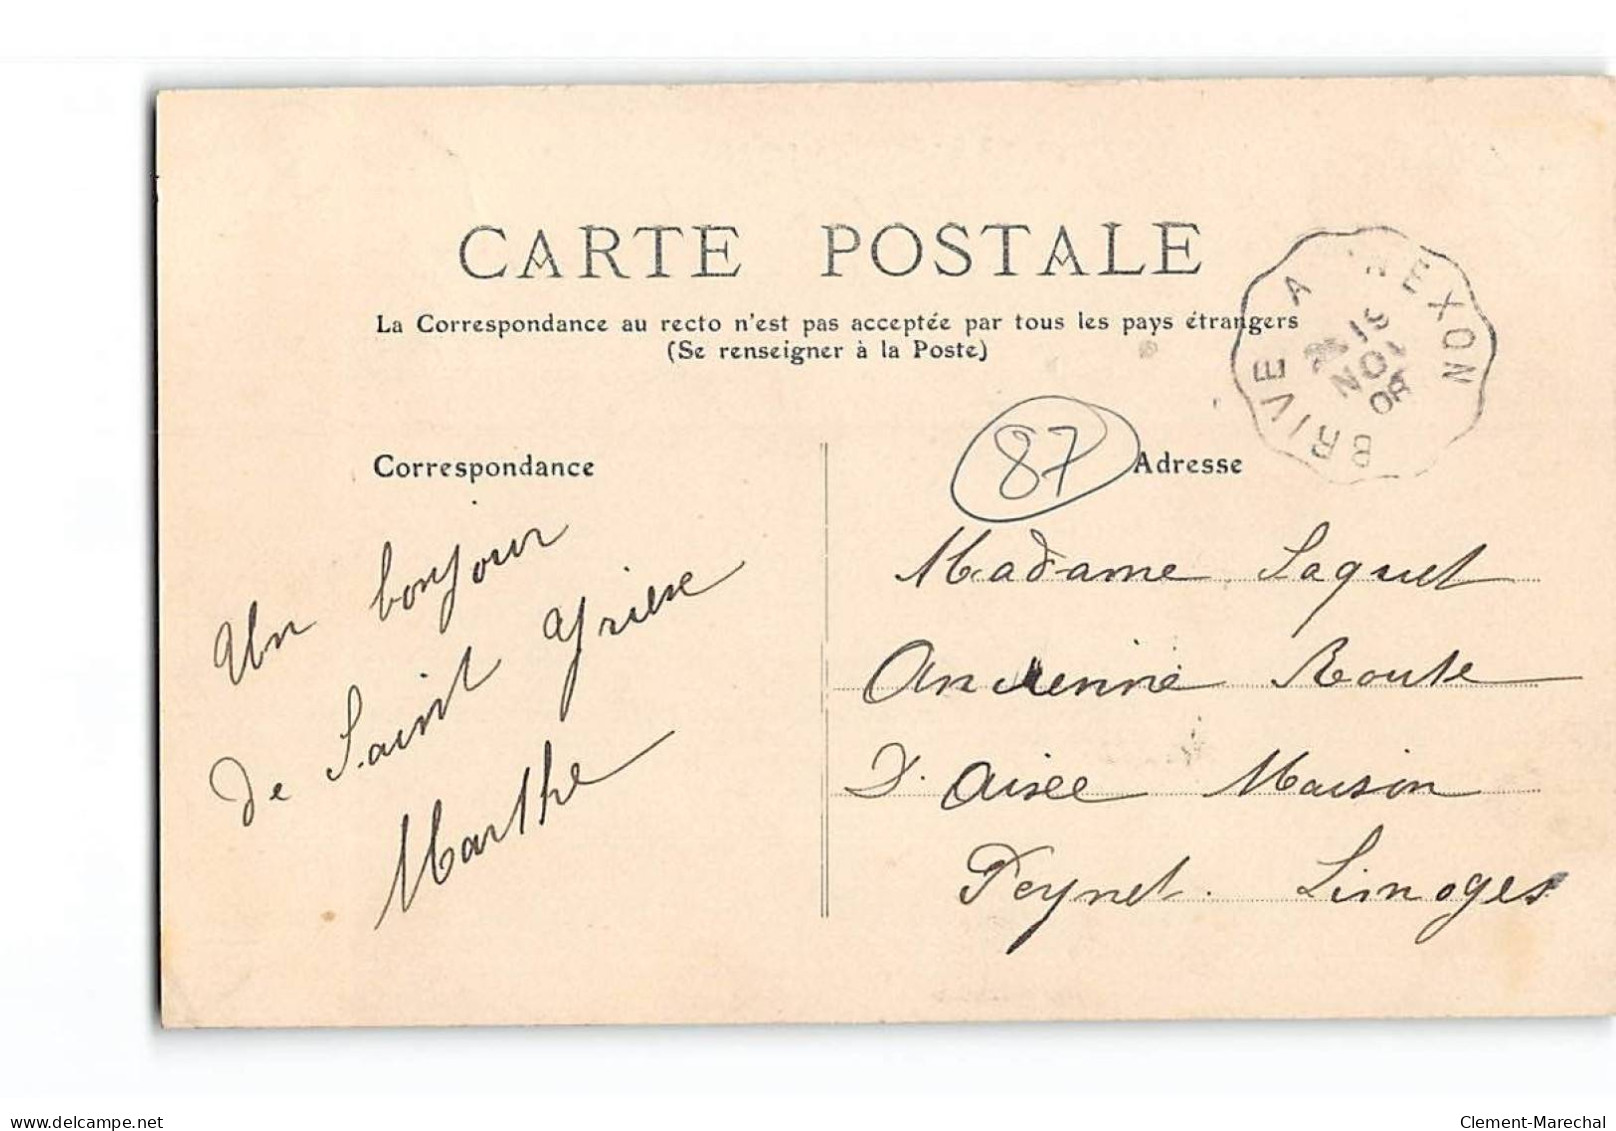 CARTE POSTALE
La Correspondance au recto n'est pas acceptée par tous les pays étrangers
(Se renseigner à la Poste)
BRIVE A NEXON
NOV
08
87
Correspondance
Un bonjour
de Saint Yrieix
Marthe
Adresse
Madame Laquet
Ancienne Route
D'Aixe Maison
Peynet. Limoges
www.delcampe.net
Clement-Marechal